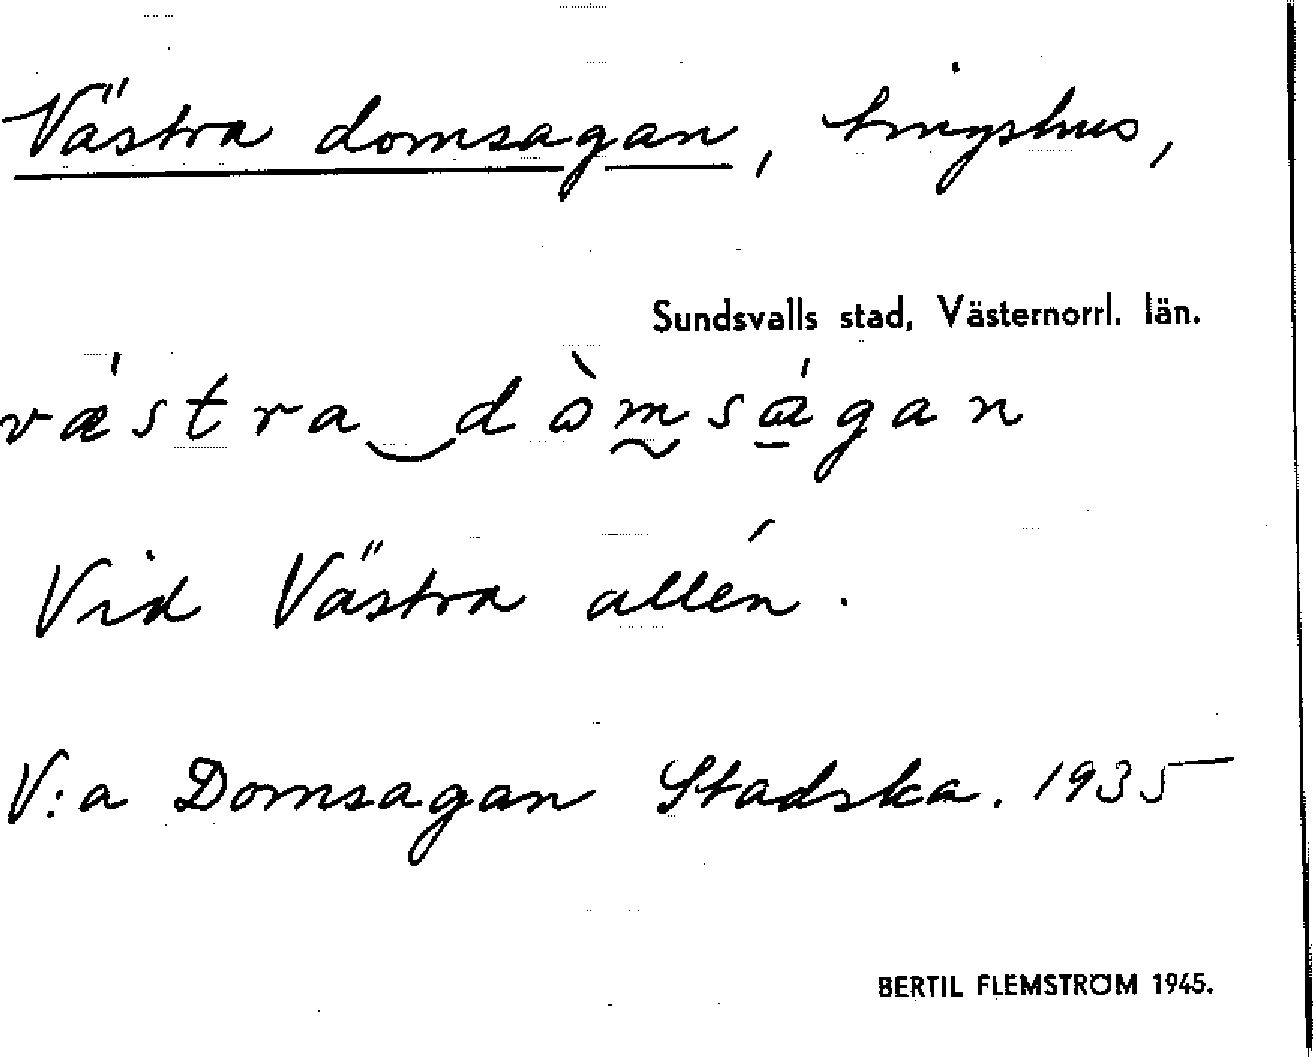 Västra domsagan, tingshus,
Sundsvalls stad, Västernorrl. län.
vǽstra‿dòm̰sá̱gan
Vid Västra allén.
V:a Domsagan Stadska. 1935
BERTIL FLEMSTRÖM 1945.